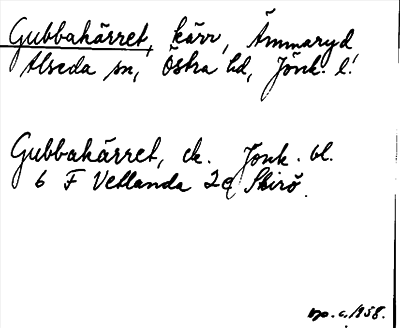 Gubbakärret, kärr, Ämmaryd
Alseda sn, Östra hd, Jönk. l.
Gubbakärret, ek. Jönk. bl.
6 F Vetlanda 2g Skirö
c. 1958.